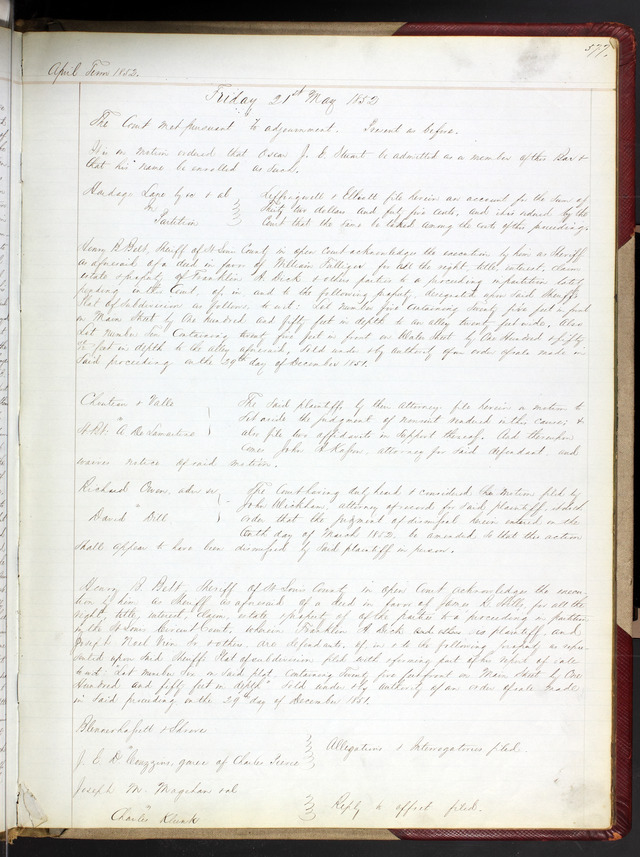 377.
April Term 1852.
Friday 21st May 1852
The Court met pursuant to adjournment. Present as before.
It is on motion ordered that Oscar J. E. Stuart be admitted as a member of this Bar &
that his name be enrolled as such.
Hardage Lane by &c & al
vs
Partition
Leffingwell & Elliott file herein an account for the sum of
two dollars and fifty five cents, and it is ordered by the
Court that the same be taxed among the costs of this proceeding.
Henry B. Belt, Sheriff of St Louis County in open court acknowledges the execution by him as Sheriff
as aforesaid of a deed in favor of William for all the right, title, interest, claim
estate & property of Franklin A. Dick & others parties to a proceeding in partition lately
pending in this Court, of in and to the following property designated upon said Sheriffs
Plat of Subdivision as follows, to wit: Lot number five containing twenty five feet in front
on Main Street by One hundred and fifty feet in depth to an alley twenty feet wide, Also
Lot Number Ten Containing twenty five feet in front on Water Street by One Hundred & fifty
feet in depth to the alley aforesaid, Sold under & by authority of an order of sale made in
said proceeding on the 29th day of December 1851.
Chouteau & Valle
vs
St. Bt. A. De Lamartine
The said plaintiffs by their attorney file herein a motion to
set aside the judgment of nonsuit rendered in this cause; &
also file two affidavits in support thereof. And thereupon
comes John A. Kasson, attorney for said defendant and
waives notice of said motion.
Richard Owen, adm
vs
David Dill
The Court having duly heard & considered the motion filed by
John Wickham, attorney of record for said plaintiff, doth
order that the judgment of dismissal herein entered on the
tenth day of March 1852, be amended so that this action
shall appear to have been dismissed by said plaintiff in person.
Henry B. Belt, Sheriff of St Louis County in open Court acknowledges the execu-
tion by him as Sheriff as aforesaid of a deed in favor of James for all the
right, title, interest, claim, estate & property of all the parties to a proceeding in partition
in the St Louis Circuit Court, wherein Franklin A. Dick and others are plaintiffs and
Joseph & others, are defendants, of in & to the following property as repre-
sented upon said Sheriffs Plat of subdivision filed with & forming part of his report of sale
to wit: Lot number Six on said plot, containing twenty five feet front on Main Street by One
Hundred and fifty feet in depth. Sold under & by authority of an order of sale made
in said proceeding on the 29th day of December 1851.
Blennerhassett & Shreve
vs
J. E. D. Couzzins, garnee of Charles Pierce
Allegations & Interrogatories filed.
Joseph M. Magehan & al
vs
Charles
Reply to offset filed.